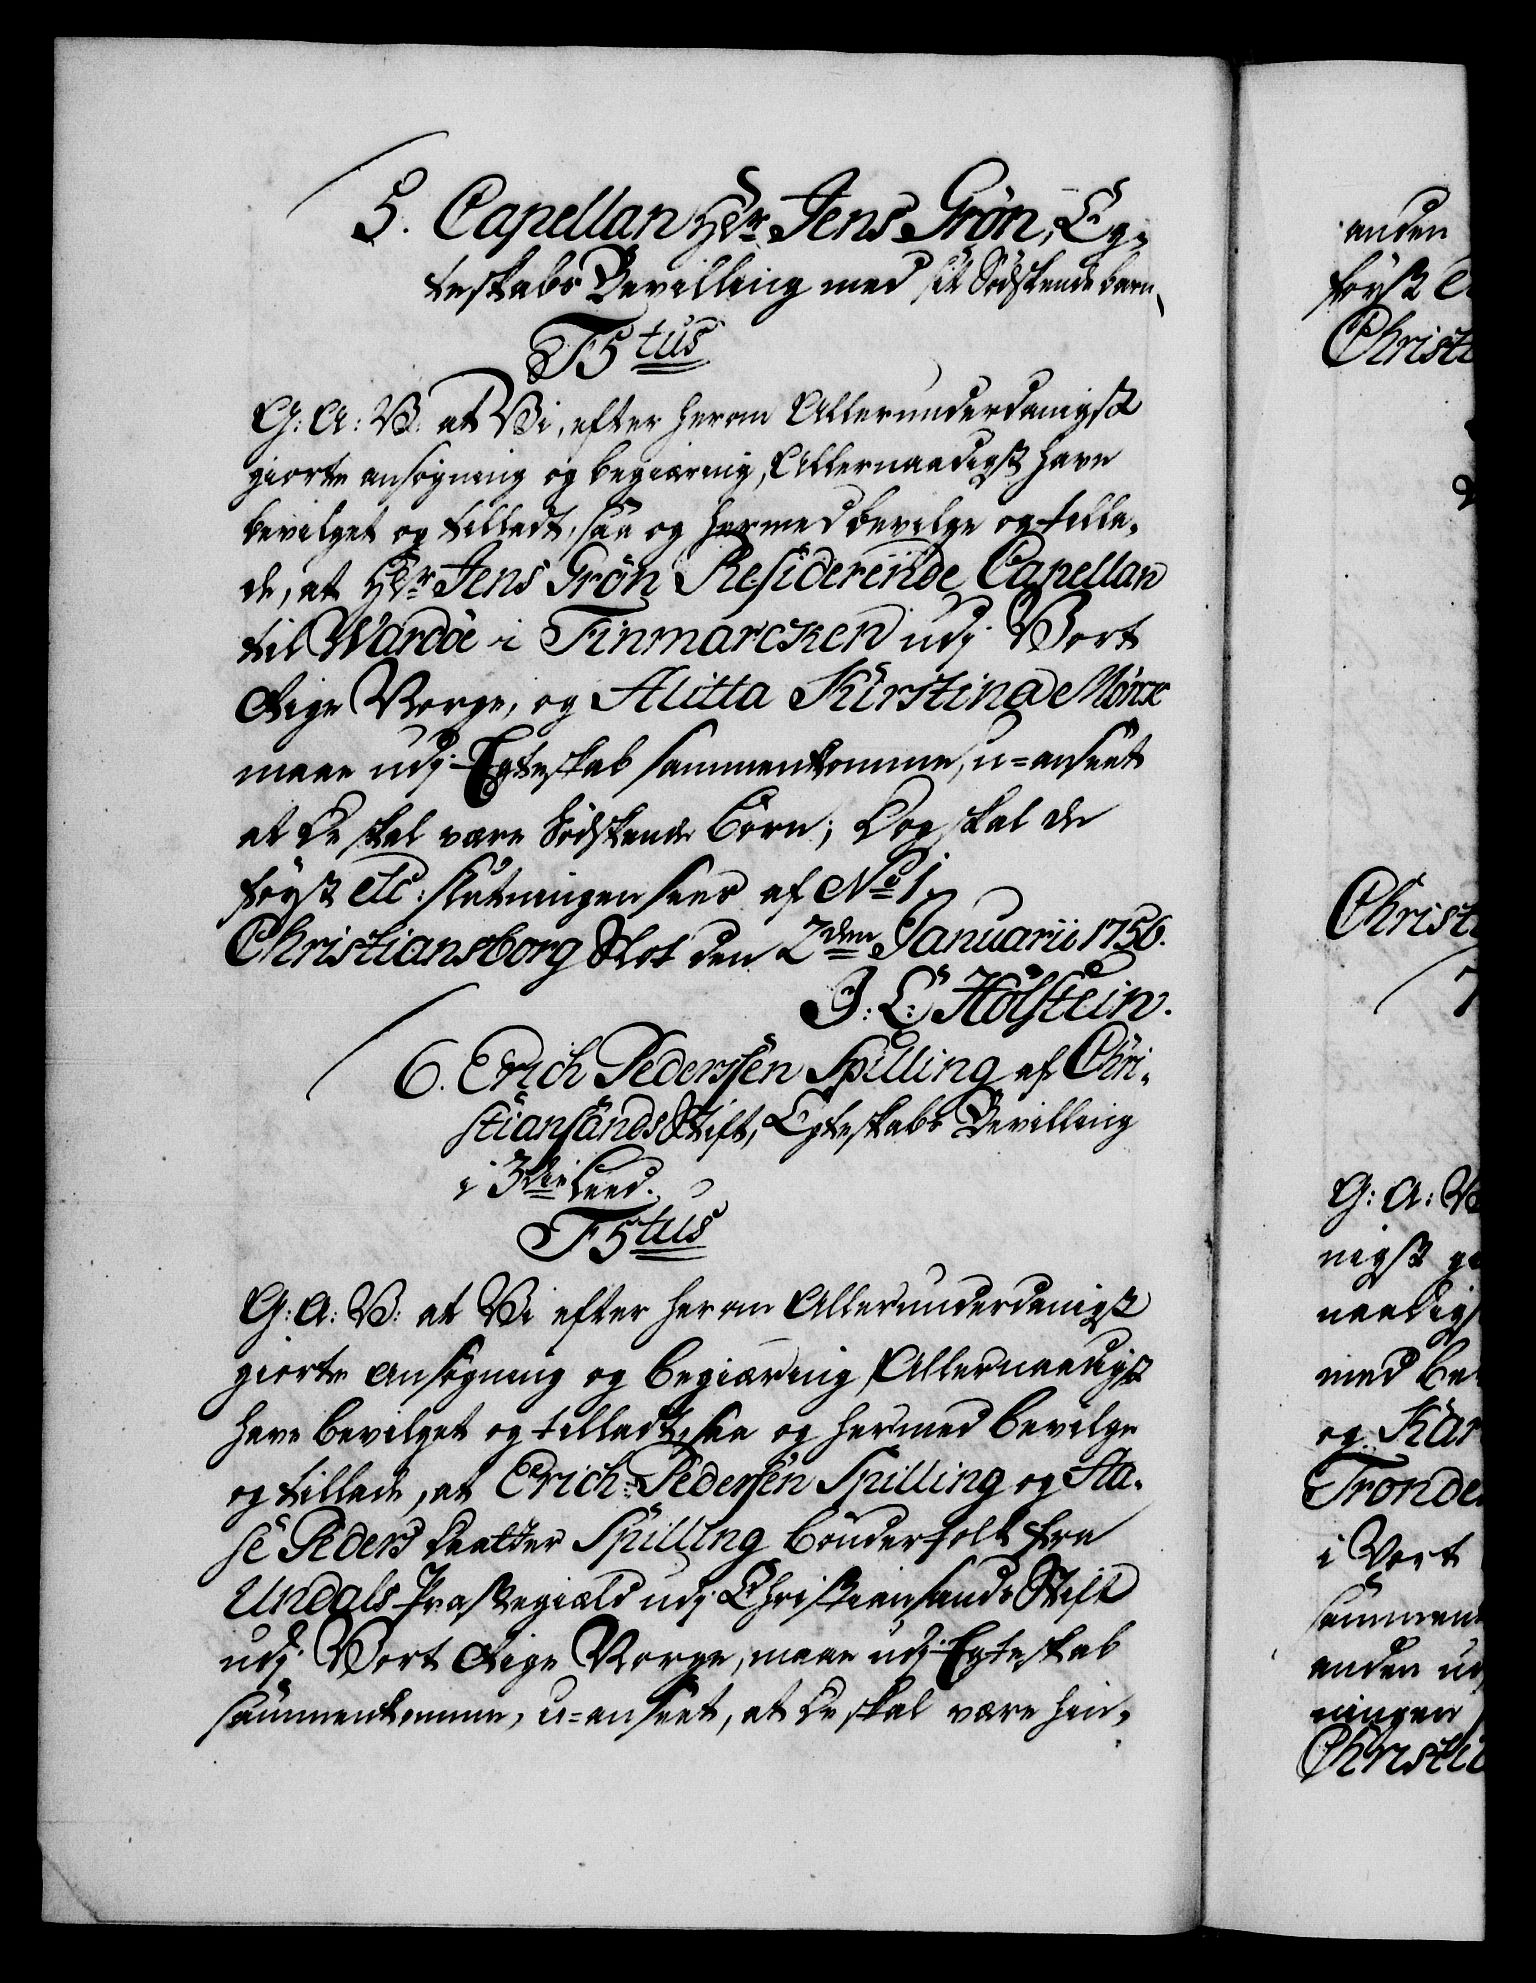 5. Capellan Hr. Jens Grøn, Eg-
teskabs Bevilling med sit Södskende barn,
F5tus
G: A: V: at Vi, efter herom Allerunderdanigst
giorte ansøgning og begiæring, Allernaadigst have
bevilget og tilladt, saa og hermed bevilge og tilla-
de, at Hr. Jens Grøn Residerende Capellan
til Wardöe i Finmarcken udj Vort
Rige Norge, og Alitta Kirstina Mönx
maae udj Egteskab sammenkomme, u=anseet
at de skal være Södskende Börn; Dog skal de
först etc: slutningen sees af No 1.
Christiansborg Slot den 2den Januarii 1756.
J: L: Holstein.
6. Erich Pederssen Spilling af Chri-
stiansands Stift, Egteskabs Bevilling
i 3die Leed.
F5tus
G: A: V: at Vi efter herom Allerunderdanigst
giorte Ansøgning og Begiæring, Allernaadigst
have bevilget og tilladt, saa og hermed bevilge
og tillade, at Erich Pedersen Spilling og Aa-
se Peders daatter Spilling bönderfolk fra
Undals Præstegiæld udj Christiansands Stift
udj Vort Rige Norge, maae udj Egteskab
sammenkomme, u=anseet, at de skal være hin-
anden
först
Christ
Christ
7
G: A: V
nigst
naadigs
med be
og Kar
Tronde
i Vort
sammen
anden ud
ningen
Christi